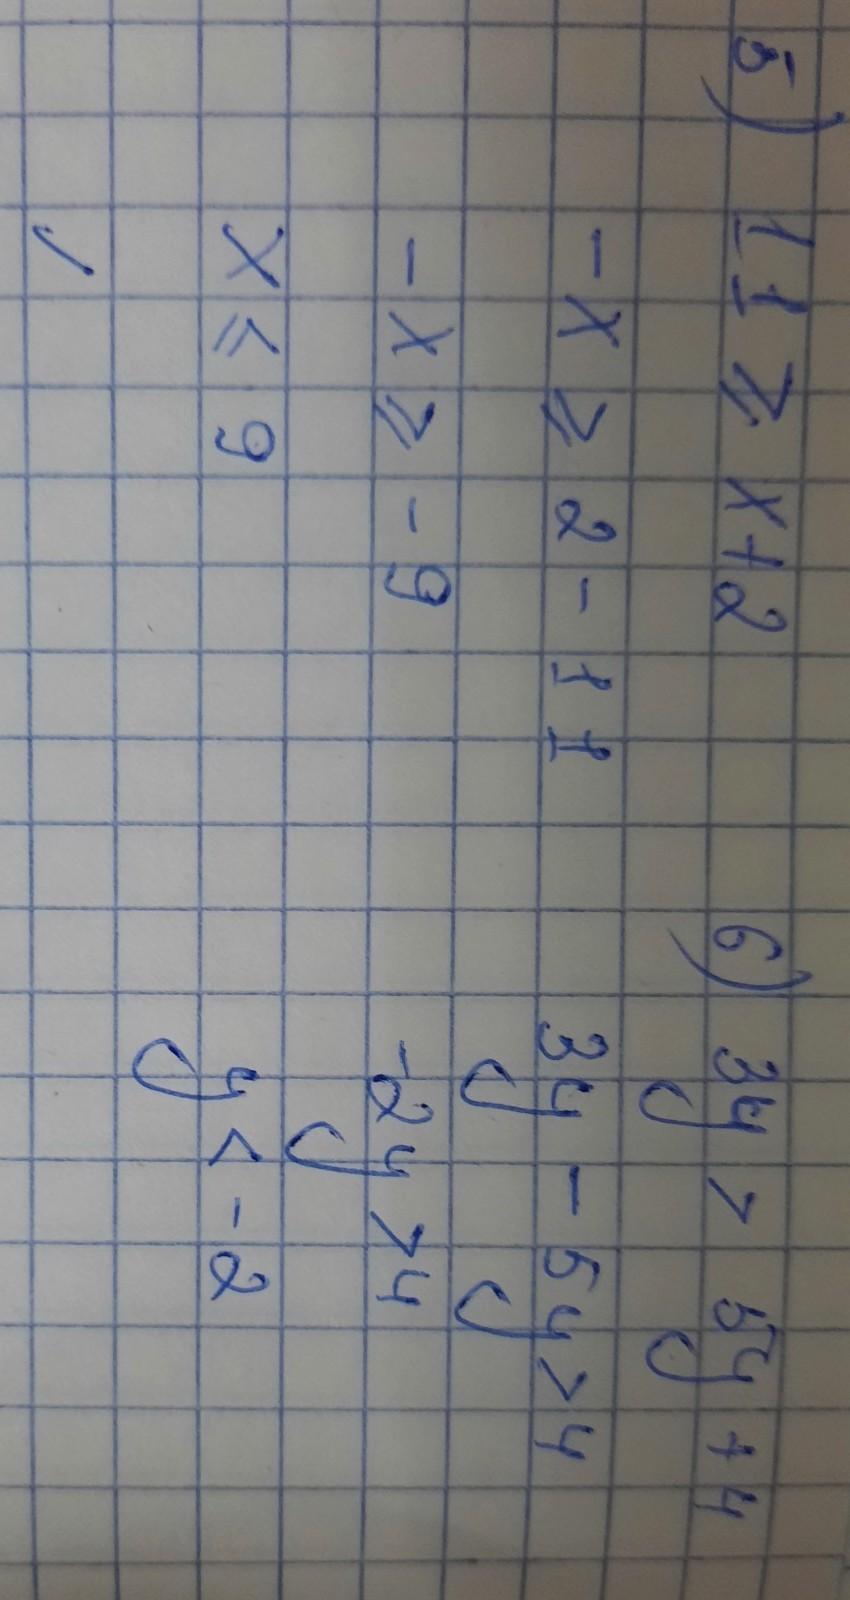 5) 11 ⩾ x+2
-x ⩾ 2 - 11
-x ⩾ -9
x ⩽ 9
6) 3y > 5y + 4
3y - 5y > 4
-2y > 4
y < -2